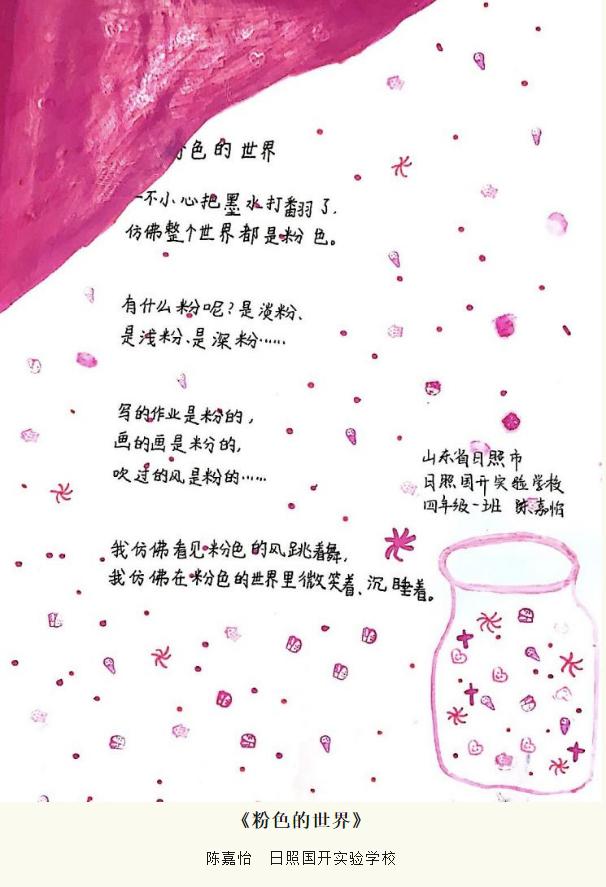 粉色的世界
一不小心把墨水打翻了.
仿佛整个世界都是粉色。
有什么粉呢?是淡粉、
是浅粉、是深粉……
写的作业是粉的,
画的画是粉的,
吹过的风是粉的……
我仿佛看见粉色的风跳着舞,
我仿佛在粉色的世界里微笑着、沉睡着。
山东省日照市
日照国开实验学校
四年级一班 陈嘉怡
《粉色的世界》
陈嘉怡 日照国开实验学校